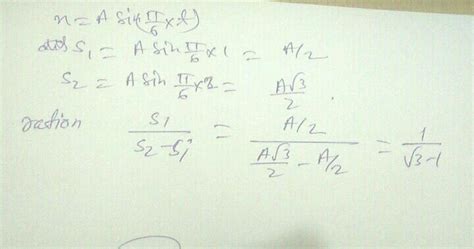 x = A sin(π/6 × t)
S₁ = A sin π/6 × 1 = A/2
S₂ = A sin π/6 × 2 = A√3/2
ration S₁/(S₂ - S₁) = (A/2)/(A√3/2 - A/2) = 1/(√3-1)